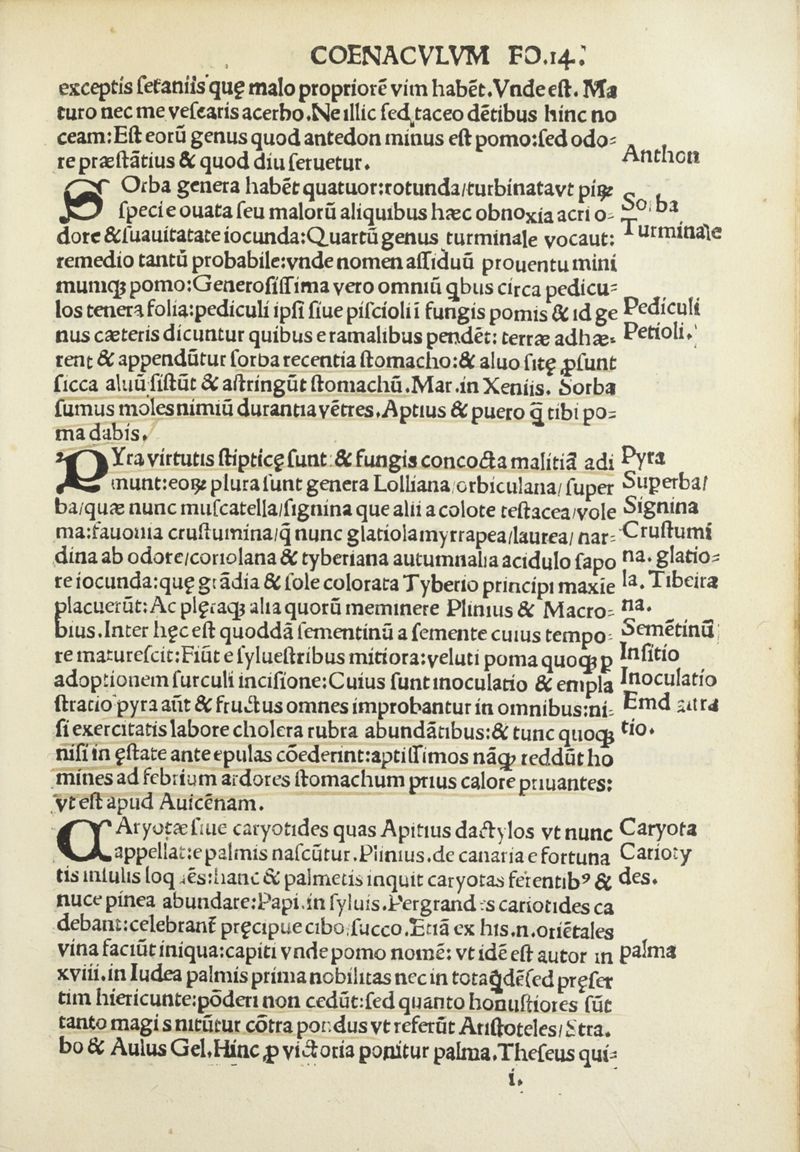 COENACVLVM FO.14.
exceptis setaniis quę malo propriorē vim habēt. Vnde est. Ma
turo nec me vescaris acerbo. Ne illic sed taceo dētibus hinc no
ceam: Est eorū genus quod antedon minus est pomo: sed odo=
re præstātius & quod diu seruetur.
Anthon
SOrba genera habēt quatuor: rotunda/turbinata vt piꝝ
specie ouata seu malorū aliquibus hæc obnoxia acri o=
Sorba
dore & suauitatate iocunda: Quartū genus turminale vocaut:
Turminale
remedio tantū probabile: vnde nomen assiduū prouentu mini
mumqꝫ pomo: Generosissima vero omniū qbus circa pedicu=
los tenera folia: pediculi ipsi siue piscioli ī fungis pomis & id ge
Pediculi
nus cæteris dicuntur quibus e ramalibus pendēt: terræ adhæ=
Petioli.
rent & appendūtur sorba recentia stomacho: & aluo sitę ꝓsunt
sicca aluū sistūt & astringūt stomachū. Mar. in Xeniis. Sorba
sumus moles nimiū durantia vētres. Aptius & puero q̄ tibi po=
ma dabis.
PYra virtutis stipticę sunt & fungis concocta malitiā adi
Pyra
munt: eoꝝ plura sunt genera Lolliana/orbiculana/super
Superba/
ba/quæ nunc muscatella/signina que alii a colote testacea/vole
Signina
ma: fauonia crustumina/q̄ nunc glatiola myrrapea/laurea/nar=
Crustumi
dina ab odore/coriolana & tyberiana autumnalia acidulo sapo
na. glatio=
re iocunda: quę grādia & sole colorata Tyberio principi maxie
la. Tibeira
placuerūt: Ac plęraqꝫ alia quorū meminere Plinius & Macro=
na.
bius. Inter hęc est quoddā sementinū a semente cuius tempo=
Semētinū
re maturescit: Fiūt e syluestribus mitiora: veluti poma quoqꝫ p
Insitio
adoptionem surculi incisione: Cuius sunt inoculatio & empla
Inoculatio
stratio pyra aūt & fructus omnes improbantur in omnibus: ni=
si exercitatis labore cholera rubra abundātibus: & tunc quoqꝫ
tio.
nisi in ęstate ante epulas cōederint: aptissimos nāqꝫ reddūt ho
mines ad febrium ardores stomachum prius calore priuantes:
vt est apud Auicēnam.
CAryotæ siue caryotides quas Apitius dactylos vt nunc
Caryota
appellat: e palmis nascūtur. Plinius. de canaria e fortuna
Carioty
tis insulis loquēs: hanc & palmetis inquit caryotas ferentibꝰ &
des.
nuce pinea abundare: Papi. in syluis. Pergrandes cariotides ca
debant: celebrant̄ pręcipue cibo, succo. Etiā ex his. n. oriētales
vina faciūt iniqua: capiti vnde pomo nomē: vt idē est autor in
palma
xviii. in Iudea palmis prima nobilitas nec in tota q̄dē sed pręser
tim hiericunte: pōderi non cedūt: sed quanto honustiores sūt
tanto magis nitūtur cōtra pondus vt referūt Aristoteles/Stra.
bo & Aulus Gel. Hinc ꝓ victoria ponitur palma. Theseus qui=
i.